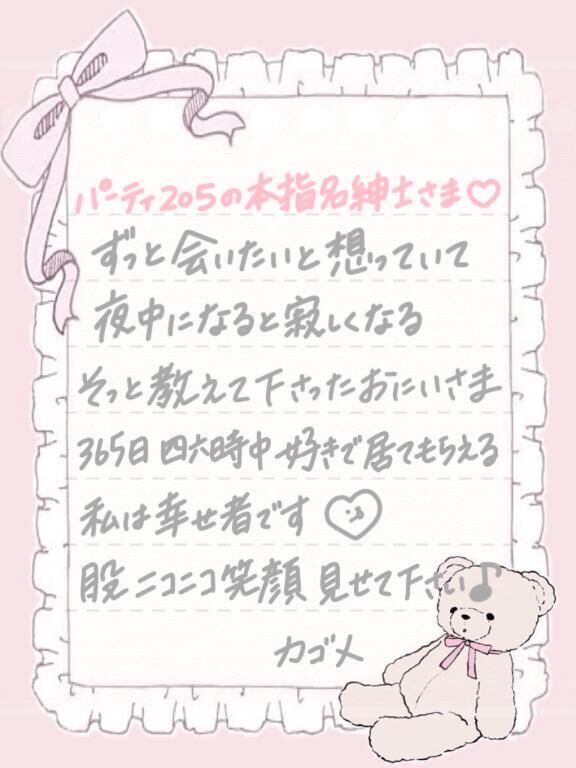 パーティ205の本指名紳士さま♡
ずっと会いたいと想っていて
夜中になると寂しくなる
そっと教えて下さったおにいさま
365日四六時中好きで居てもらえる
私は幸せ者です
股ニコニコ笑顔見せて下さい♪
カゴメ